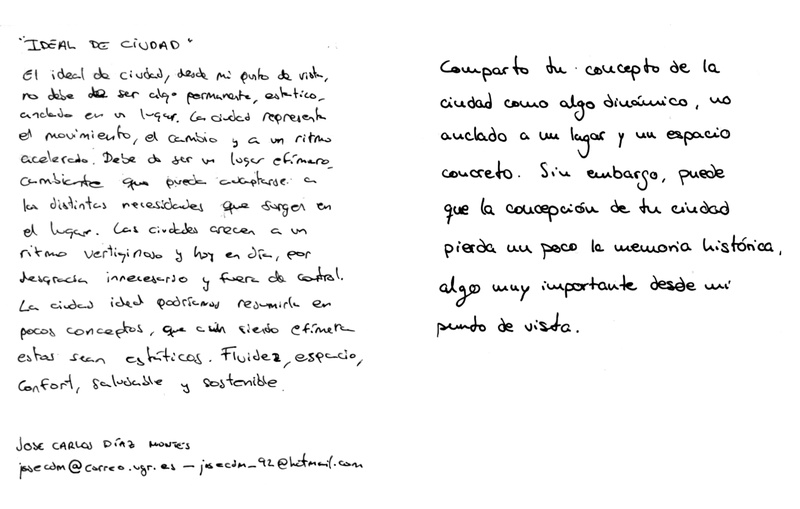 "IDEAL DE CIUDAD"
El ideal de ciudad, desde mi punto de vista,
no debe de ser algo permanente, estático,
anclado en un lugar. La ciudad representa
el movimiento, el cambio y a un ritmo
acelerado. Debe de ser un lugar efímero,
cambiante que pueda adaptarse a
las distintas necesidades que surgen en
el lugar. Las ciudades crecen a un
ritmo vertiginoso y hoy en día, por
desgracia innecesario y fuera de control.
La ciudad ideal podríamos resumirla en
pocos conceptos, que aún siendo efímera
estos sean estáticos. Fluidez, espacio,
confort, saludable y sostenible.
JOSE CARLOS DÍAZ MONTES
josecdm@correo.ugr.es - josecdm_92@hotmail.com
Comparto tu concepto de la
ciudad como algo dinámico, no
anclado a un lugar y un espacio
concreto. Sin embargo, puede
que la concepción de tu ciudad
pierda un poco la memoria histórica,
algo muy importante desde mi
punto de vista.